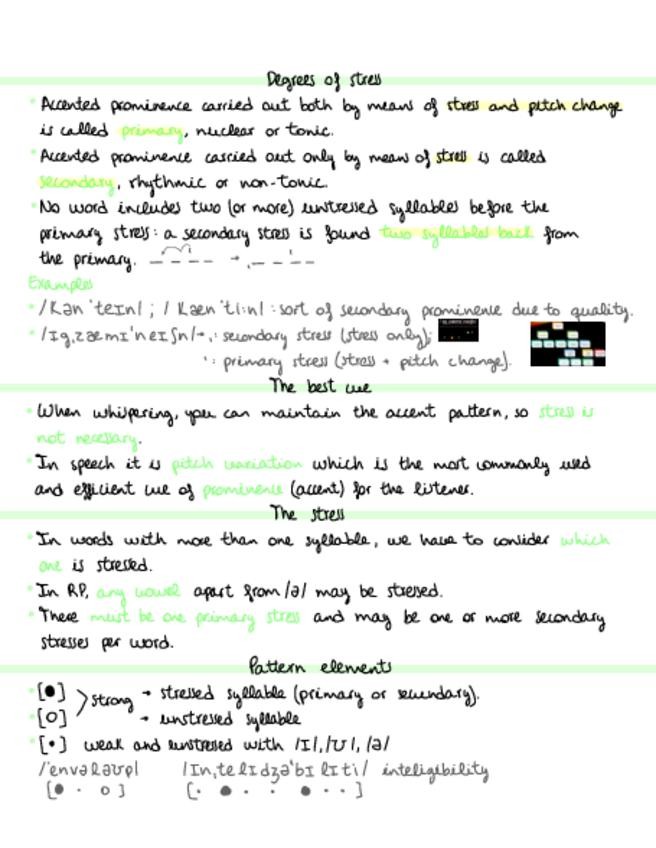 Degrees of stress
• Accented prominence carried out both by means of stress and pitch change
is called primary, nuclear or tonic.
• Accented prominence carried out only by means of stress is called
secondary, rhythmic or non-tonic.
• No word includes two (or more) unstressed syllables before the
primary stress: a secondary stress is found two syllables back from
the primary.
Examples
• /kən ˈteɪn/ ; /kæn ˈtiːn/ : sort of secondary prominence due to quality.
• /ɪgˌzæmɪˈneɪʃn/ → ˌ: secondary stress (stress only);
ˈ: primary stress (stress + pitch change).
The best cue
• When whispering, you can maintain the accent pattern, so stress is
not necessary.
• In speech it is pitch variation which is the most commonly used
and efficient cue of prominence (accent) for the listener.
The stress
• In words with more than one syllable, we have to consider which
one is stressed.
• In RP, any vowel apart from /ə/ may be stressed.
• There must be one primary stress and may be one or more secondary
stresses per word.
Pattern elements
• [●] > strong → stressed syllable (primary or secondary).
• [○] → unstressed syllable
• [•] weak and unstressed with /ɪ/, /ʊ/, /ə/
/ˈenvələʊp/ /ɪnˌtelɪdʒəˈbɪlɪti/ inteligibility
[● · ○] [· ● · · ● · ·]